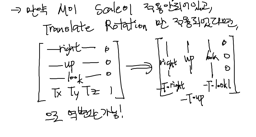 → 만약 M이 Scale이 적용안되어있고,
Translate Rotation 만 적용되어있다면,
[ —right— 0
—up— 0
—look— 0
Tx Ty Tz 1 ] ⇒ [ right up look 0
0
0
-T·right -T·up -T·look 1 ]
으로 역변환가능!